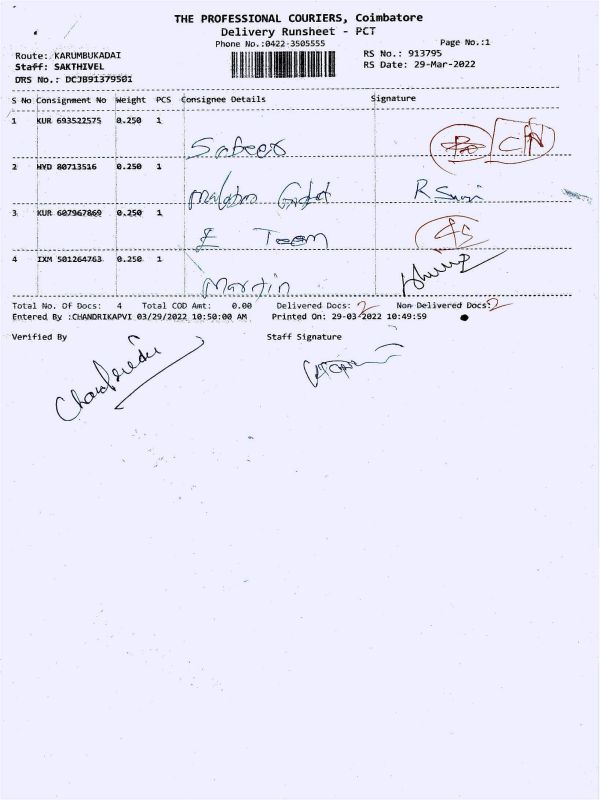 THE PROFESSIONAL COURIERS, Coimbatore
Delivery Runsheet - PCT
Phone No.:0422-3505555 Page No.:1
Route: KARUMBUKADAI RS No.: 913795
Staff: SAKTHIVEL RS Date: 29-Mar-2022
DRS No.: DCJB91379501
S No Consignment No Weight PCS Consignee Details Signature
1 KUR 693522575 0.250 1
Sabeer CN
2 HYD 80713516 0.250 1
Malabar Gold
3 KUR 607967869 0.250 1
E Team
4 IXM 501264763 0.250 1
Martin
Total No. Of Docs: 4 Total COD Amt: 0.00 Delivered Docs: 2 Non Delivered Docs: 2
Entered By :CHANDRIKAPVI 03/29/2022 10:50:00 AM Printed On: 29-03-2022 10:49:59
Verified By Staff Signature